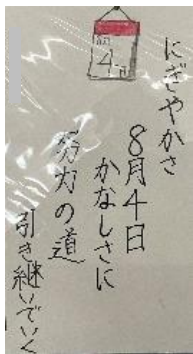 4
にぎやかさ
8月4日
かなしさに
灯の道
引き継いでいく